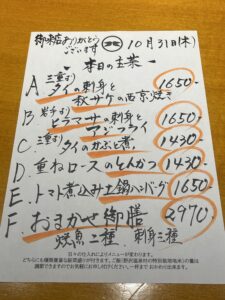 御来店ありがとうございます 10月31日(木)
~本日の主菜~
A. 三重すり タイの刺身と 秋サケの西京焼き 1650-
B. 岩手すり ヒラマサの刺身と アジフライ 1650-
C. 三重すり タイのかぶと煮 1430-
D. 重ねロースのとんかつ 1430-
E. トマト煮込み土鍋ハンバーグ 1650-
F. おまかせ御膳 2970-
焼魚二種、刺身三種
日々の仕入れによりメニューが変わります。